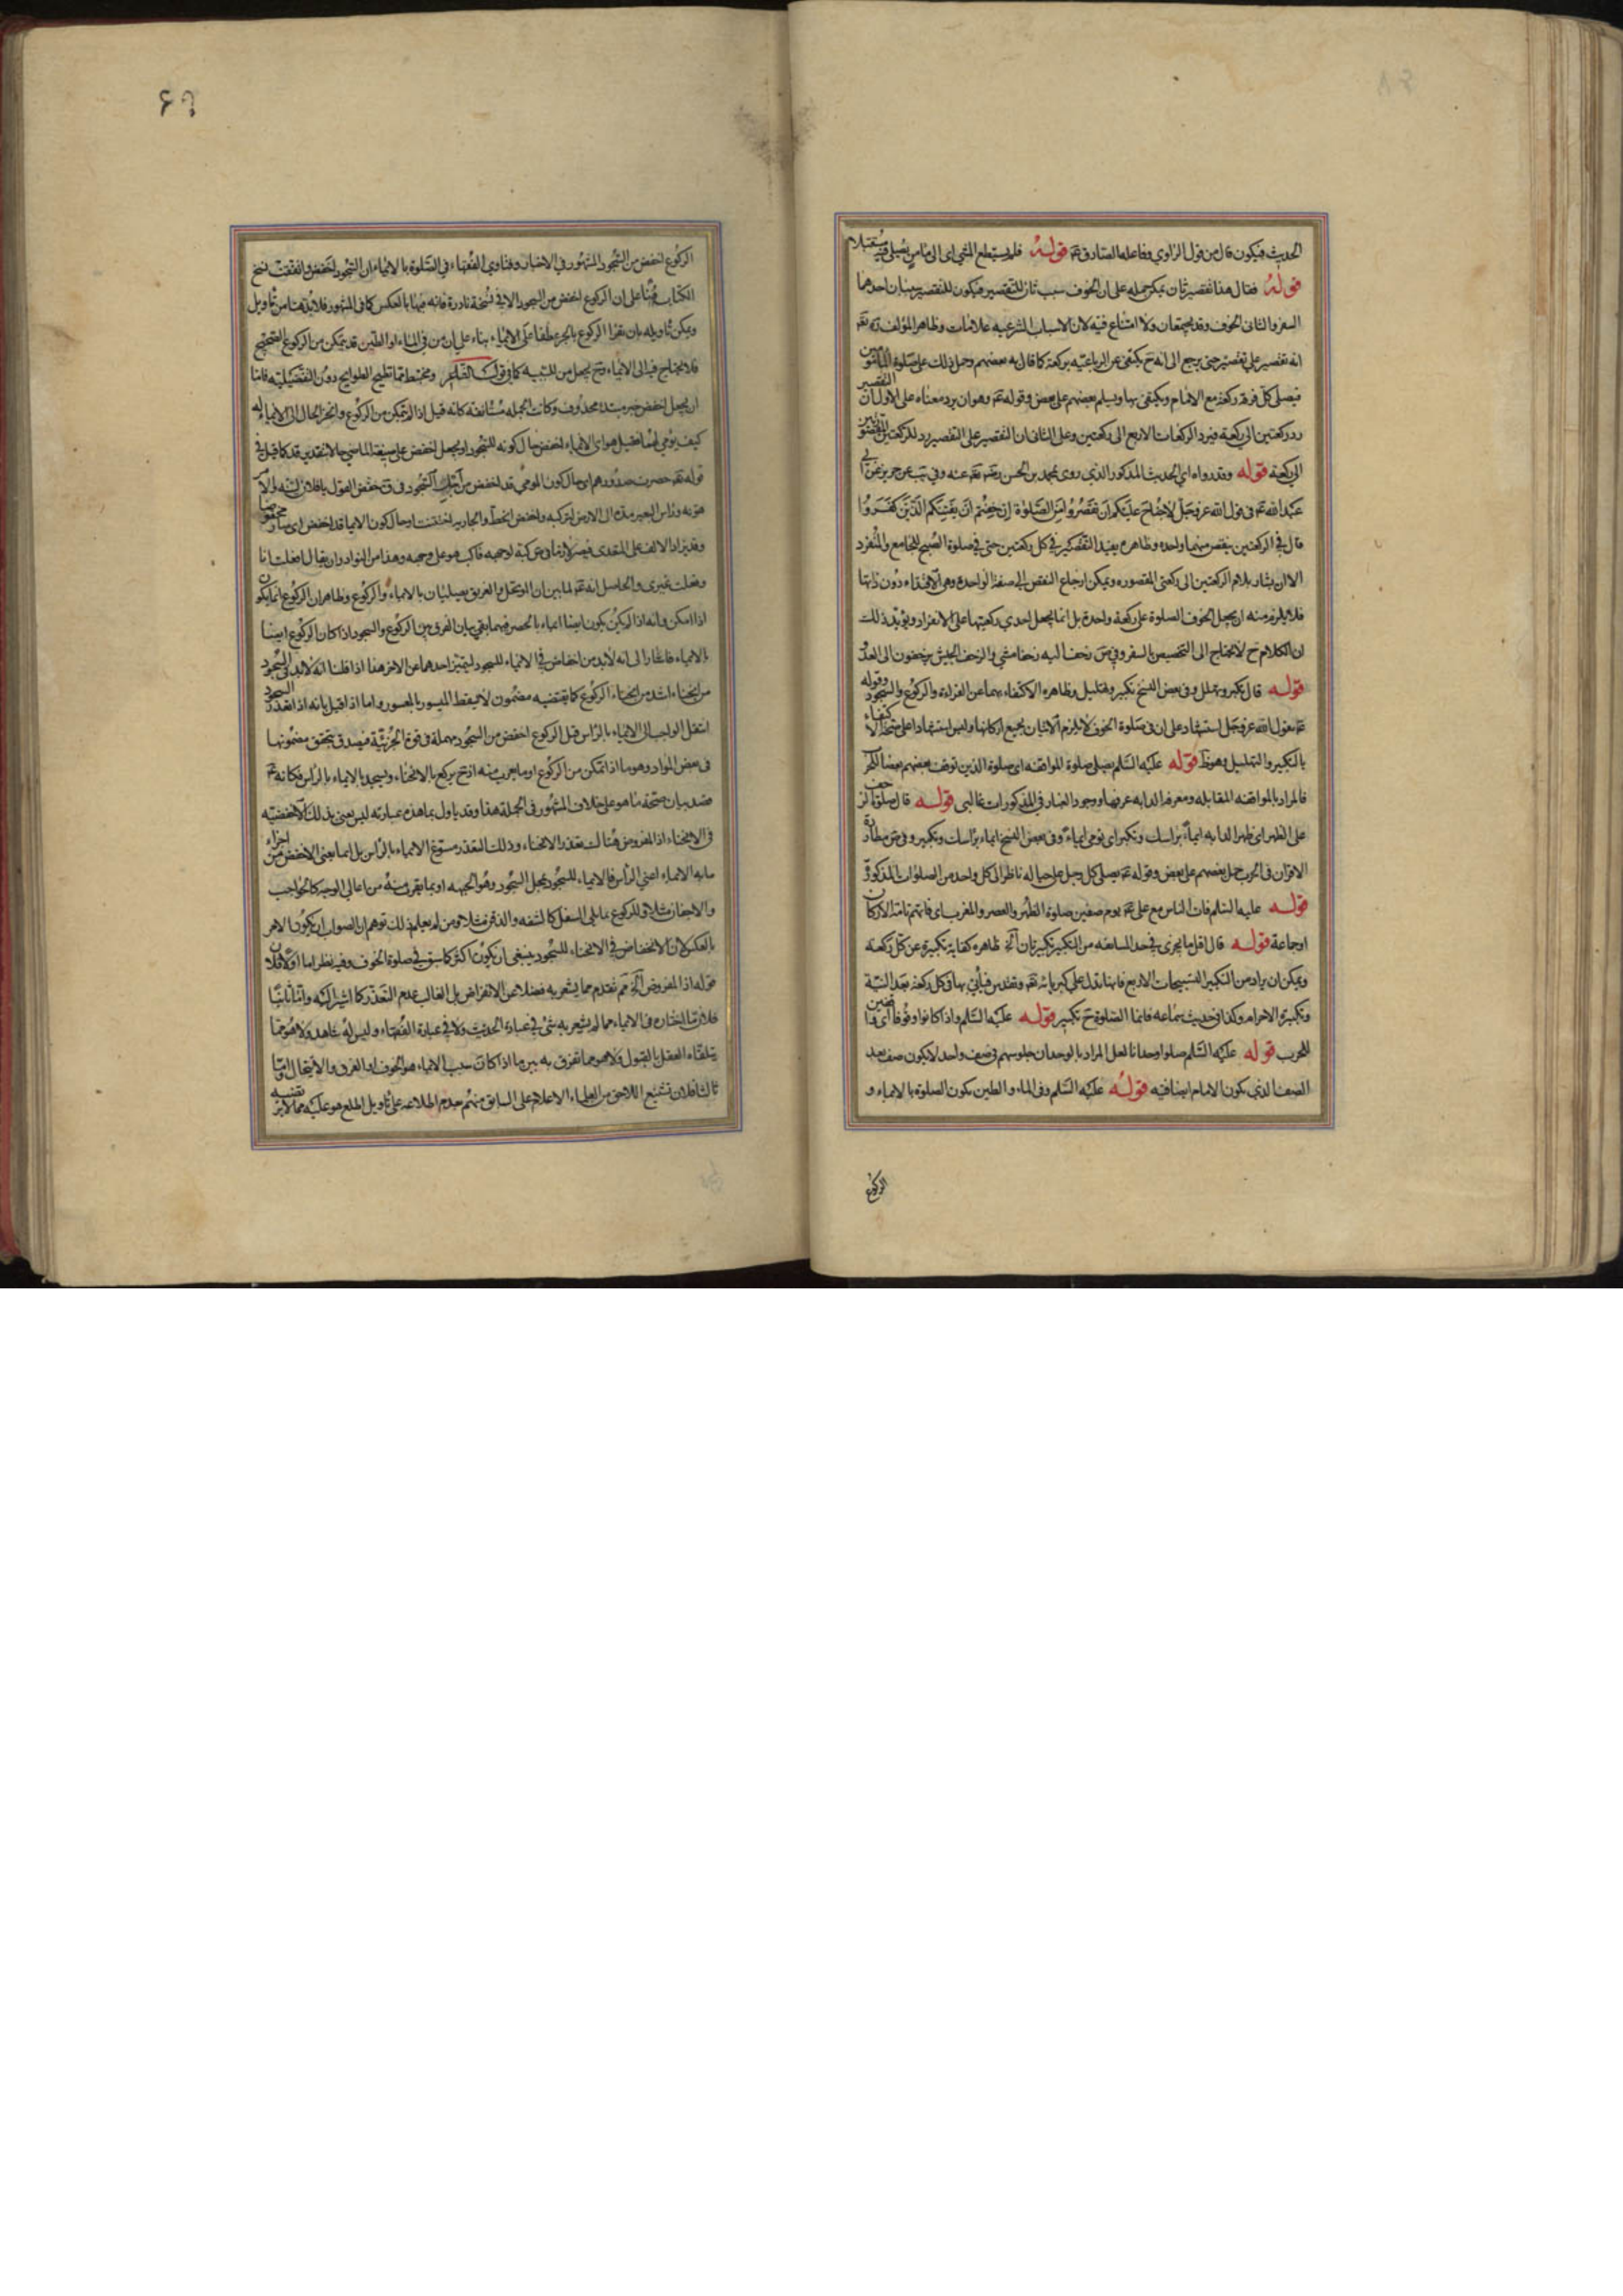 الحديث فيكون قال من قول الراوي وفاعلها الصادق عم قوله فلم يستطع المشي اى الى مامن يصلى فيه مستقبلا
قوله فقال هذا تقصير ثان يمكن حمله على ان الخوف سبب ثان للتقصير فيكون للتقصير سببان احدهما
السفر والثانى الخوف وقد يجتمعان ولا امتناع فيه لان الاسباب الشرعيه علامات وظاهر المؤلف ره تعه
انه تقصير على تقصير حتى يرجع الى انه ح يكتفى عن الرباعيه بركعة كما قال به بعضهم وحمل ذلك على صلوة المأمومين
فيصلى كل فرقة ركعة مع الامام ويكتفى بها ويسلم بعضهم على بعض وقوله عم وهو ان يرد معناه على الاول ان التقصير
رد ركعتين الى ركعة فيرد الركعات الاربع الى ركعتين وعلى الثانى ان التقصير على التقصير رد للركعتين المقصورتين
الى ركعة قوله وقد رواه اى الحديث المذكور الذى روى محمد بن الحسن رضه عنه وفى يب عن حريز عن ابى
عبد الله عم فى قول الله عز وجل لا جناح عليكم ان تقصروا من الصلوة ان خفتم ان يفتنكم الذين كفروا
قال فى الركعتين ينقص منهما واحده وظاهره يفيد التقصير فى كل ركعتين حتى فى صلوة الصبح للجامع والمنفرد
الا ان يشار بلام الركعتين الى ركعتى المقصوره ويمكن ارجاع النقص الى صفة الواحدة وهى الاقتداء دون ذاتها
فلا يلزم منه ان يجعل الخوف الصلوة على ركعة واحدة بل انما يجعل احدى ركعتيها على الانفراد ويؤيد ذلك
ان الكلام ح لا يحتاج الى التخصيص بالسفر وفى ص زحف اليه زحفا مشى والزحف الجيش يزحفون الى العدو
قوله قال تكبر وتهلل وفى بعض النسخ تكبير وتهليل وظاهره الاكتفاء بهما عن القراءة والركوع والسجود وقوله
عم يقول الله عز وجل استشهاد على ان فى صلوة الخوف لا يلزم الاتيان بجميع اركانها وليس استشهادا على صحة الاكتفاء
بالتكبير والتهليل وهو ظ قوله عليه السلم يصلى صلوة المواقفه اى صلوة الذين توقف بعضهم بعضا للحرب
فالمراد بالمواقفه المقابله ومعرفه الدابه عرفها ووجود الغبار فى المذكورات غالبى قوله قال صلوة الزحف
على الظهر اى ظهر الدابه ايماء براسك وتكبر اى تومى ايماء وفى بعض النسخ ايماء براسك وتكبير وفى ص مطاردة
الاقران فى الحرب حمل بعضهم على بعض وقوله عم يصلى كل رجل على حياله ناظر الى كل واحد من الصلوات المذكورة
قوله عليه السلم فات الناس مع على عم يوم صفين صلوة الظهر والعصر والمغرب اى فاتتهم تامة الاركان
او جماعة قوله قال اقل ما يجزى فى حد المسايفه من التكبير تكبيرتان الخ ظاهره كفاية تكبيرة عن كل ركعة
ويمكن ان يراد من التكبير التسبيحات الاربع فانها تدل على كبريائه تعه وتقدس فيأتى بها فى كل ركعة بعد النية
وتكبيرة الاحرام وكذا فى حديث سماعه فانما الصلوة ح تكبير قوله عليه السلم واذا كانوا وقوفا اى واقفين
للحرب قوله عليه السلم صلوا وحدانا لعل المراد بالوحدان جلوسهم فى صف واحد لا يكون صف بعد
الصف الذى يكون الامام ايضا فيه قوله عليه السلم وفى الماء والطين تكون الصلوة بالايماء و
الركوع
۶۹
الركوع اخفض من السجود المشهور فى الاخبار وفتاوى الفقهاء فى الصلوة بالايماء ان السجود اخفض واتفقت نسخ
الكتاب هنا على ان الركوع اخفض من السجود الا فى نسخة نادرة فانه فيها بالعكس كما فى المشهور فلا بد هنا من تأويل
ويمكن تأويله بان يقرا الركوع بالجر عطفا على الايماء بناء على ان من فى الماء او الطين قد يتمكن من الركوع الصحيح
فلا يحتاج فيه الى الايماء وح يجعل من للسببيه كما فى قولك ومختبط مما تطيح الطوايح دون التفضيليه فاما
ان يجعل اخفض خبر مبتدء محذوف وكانت الجمله مستانفة كانه قيل اذا لم يتمكن من الركوع وانجر الحال الى الايماء له
كيف يومى لهما فقيل هو اى الايماء اخفض حال كونه للسجود او يجعل اخفض على صيغة الماضى حالا بتقدير قد كما قيل فى
قوله تعه حصرت صدورهم اى حال كون المومى قد اخفض من اجل السجود فى ق خفض القول يا فلان لينه والامر
هونه وراس البعير مده الى الارض لتركبه واخفض انحط والجاريه اختتنت او حال كون الايما قد اخفض اى صار مخفوضا
وقد يزاد الالف على المتعدى فيصير لازما فى ص كبه لوجهه فاكب هو على وجهه وهذا من النوادر ان يقال افعلت انا
وفعلت غيرى والحاصل انه عم لما بين ان المتوحل والغريق يصليان بالايماء والركوع وظاهر ان الركوع انما يكون
اذا امكن وانه اذا لم يمكن يكون ايضا ايماء بالحصر فيهما بقى بيان الفرق بين الركوع والسجود اذا كان الركوع ايضا
بالايماء فاشار الى انه لا بد من اخفاض فى الايماء للسجود ليتميز احدهما عن الاخر هذا اذا قلنا انه لا بد فى السجود
من انحناء اشد من انحناء الركوع كما يقتضيه مضمون لا يسقط الميسور بالمعسور واما اذا قيل بانه اذا تعذر السجود
انتقل الواجب الى الايماء بالراس قبل الركوع اخفض من السجود مهملة فى قوة الجزئية فيصدق بتحقق مضمونها
فى بعض المواد وهو ما اذا تمكن من الركوع او ما يقرب منه اذ ح يركع بالانحناء ويسجد بالايماء بالراس فكانه عم
قصد بيان صحة ما هو على خلاف المشهور فى الجملة هذا وقد ياول بما هذه عبارته ليس يعنى بذلك الاخفضيه
فى الانحناء اذ المفروض هنالك تعذر الانحناء وذلك التعذر مسوغ الايماء بالراس بل انما يعنى الاخفض من اجزاء
ما به الايماء اعنى الرأس فالايماء للسجود بمحل السجود وهو الجبهه او بما يقرب منه من اعالى الوجه كالحواجب
والاجفان مثلا وللركوع بما يلى السفل كالشفه والذقن مثلا ومن لم يعلم ذلك توهم ان الصواب ان يكون الامر
بالعكس لان الانخفاض فى الانحناء للسجود ينبغى ان يكون اكثر كما سبق فى صلوة الخوف وفيه نظر اما اولا فلان
قوله اذ المفروض الخ مم لعدم ما يشعر به فضلا عن الافتراض بل الغالب عدم التعذر كما اشير اليه واما ثانيا
فلان ما اختاره فى الايماء مما لم يشعر به شئ فى عبارة الحديث ولا فى عبارة الفقهاء وليس له شاهد ولا هو مما
يتلقاه العقل بالقبول ولا هو مما تفرق به بين ما اذا كانت سبب الايماء هو الخوف او الغرق والايتحال واما
ثالثا فلان تشنيع اللاحق من العلماء الاعلام على السابق منهم بعدم اطلاعه على تاويل اطلع هو عليه مما لا يرتضيه